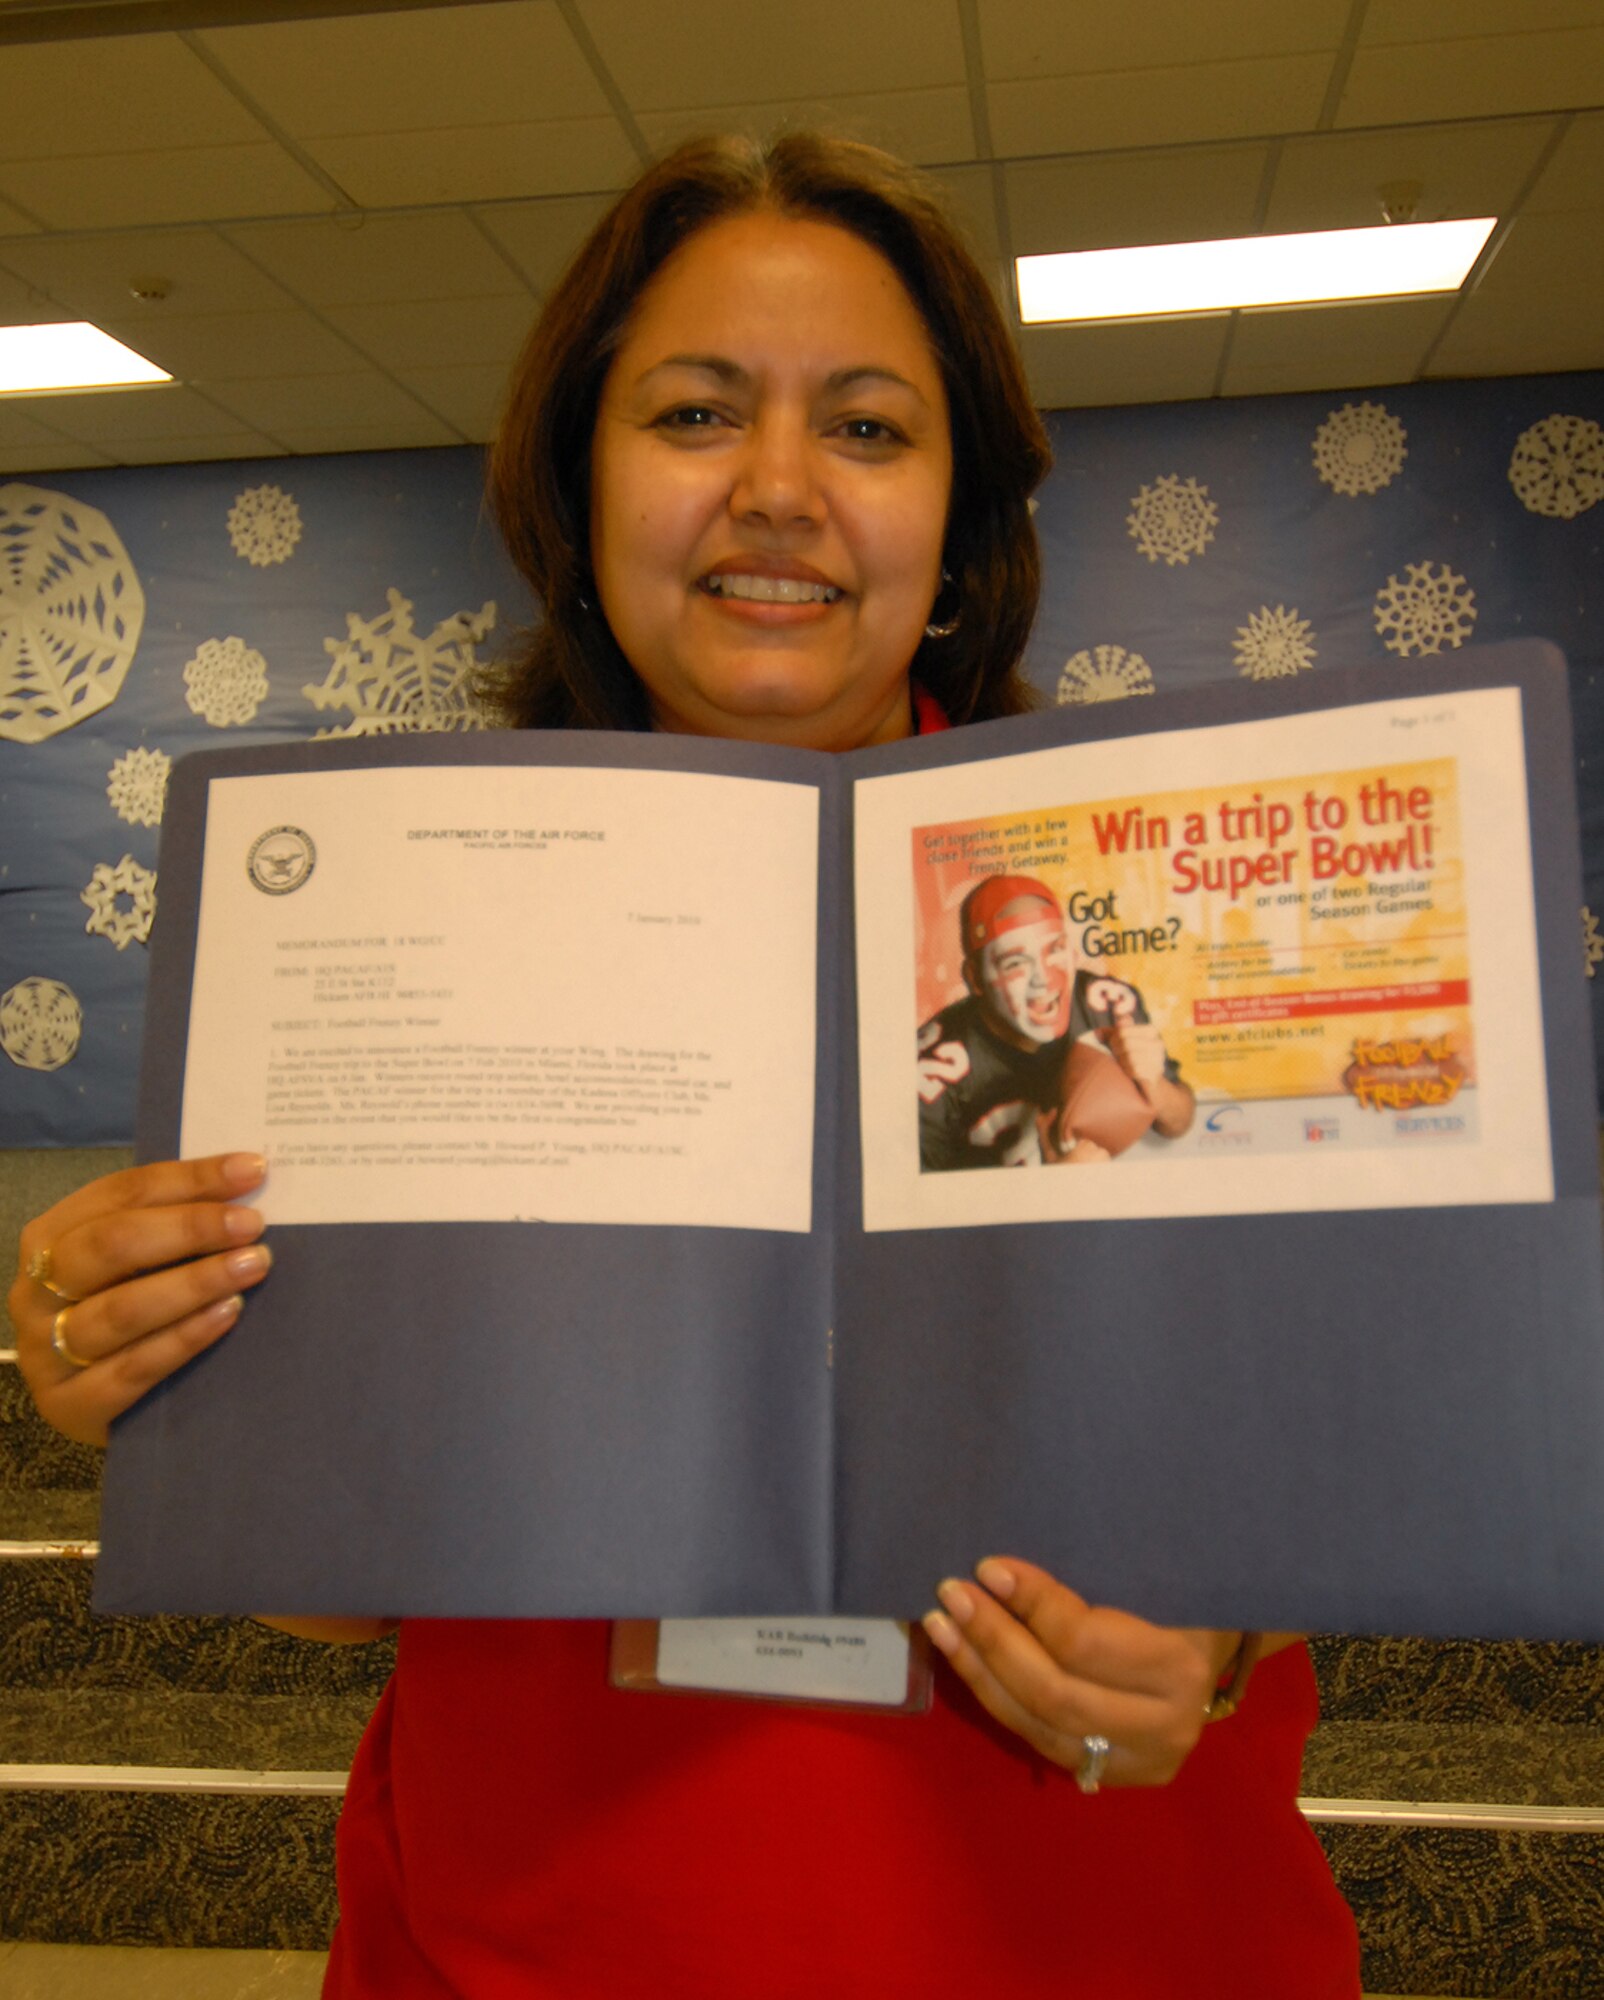 DEPARTMENT OF THE AIR FORCE
PACIFIC AIR FORCES
7 January 2010
MEMORANDUM FOR 18 WG/CC
FROM: HQ PACAF/A1S
Hickam AFB HI 96853-5411
SUBJECT: Football Frenzy Winner
1. We are excited to announce a Football Frenzy winner at your Wing. The drawing for the
Football Frenzy trip to the Super Bowl on 7 Feb 2010 in Miami, Florida took place at
HQ AFSVA on 6 Jan. Winners receive round trip airfare, hotel accommodations, rental car, and
game tickets. The PACAF winner for the trip is a member of the Kadena Officers Club, Ms.
Lisa Reynolds. Ms. Reynold's phone number is We are providing you this
information in the event that you would like to be the first to congratulate her.
2. If you have any questions, please contact Mr. Howard P. Young, HQ PACAF/A1SC,
or by email at howard.young@hickam.af.mil.
Page 1 of 1
Get together with a few
close friends and win a
Frenzy Getaway.
Win a trip to the
Super Bowl!
or one of two Regular
Season Games
Got
Game?
All trips include:
• Airfare for two
• Hotel accommodations
• Car rental
• Tickets to the game
Plus, End of Season Bonus drawing for $1,000
in gift certificates
www.afclubs.net
FOOTBALL
FRENZY
SERVICES
32
3